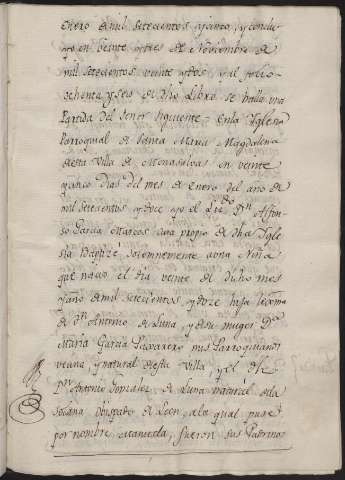 enero de mil setecientos y cinco, y conclu
yo en veinte y tres de Noviembre de
mil setecientos veinte y dos y al folio
ochenta y seis de dho Libro se halla una
Partida del tenor siguiente. En la Iglesia
Parroquial de Santa Maria Magdalena
desta Villa de Menasalvas en veinte
y cinco dias del mes de Enero del año de
mil setecientos y doce yo el Lizdo Dn Alfon
so Garcia Marcos cura propio de dha Igle
sia Baptize solemnemente a una Niña
que nacio el dia veinte de dicho mes
y año de mil setecientos y doze hija lexma
de Dn Antonio de Luna y de su muger Da
Maria Garcia Navarro mis Parroquianos
vecina, y natural desta Villa, y el dho
Dn Antonio Gonzalez de Luna natural de la
Obispado de Leon, a la qual puse
por nombre Manuela, fueron sus Padrino